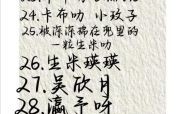 24.卡布叻 小玫子
25.被深深稀在兜里的
一粒生米叻
26.生米瑛瑛
27.吴欣月
28.瀛予呀